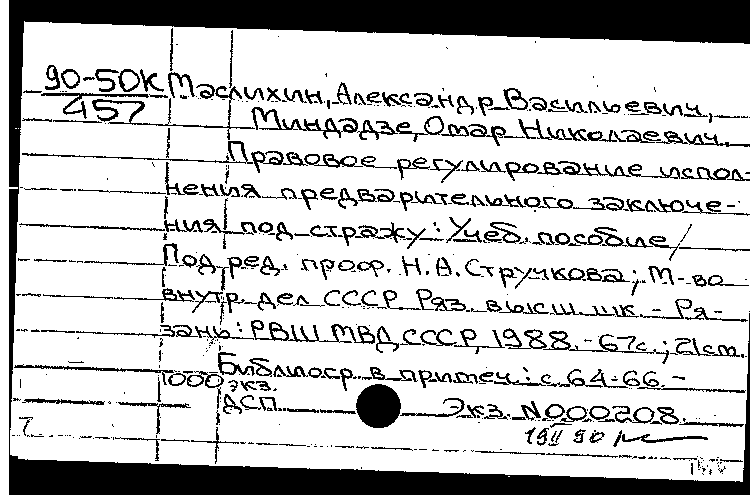 90-50К Маслихин, Александр Васильевич,
457
Миндадзе, Отар Николаевич.
Правовое регулирование испол-
нения предварительного заключе-
ния под стражу: Учеб. пособие /
Под ред. проф. Н.А. Стручкова; М-во
внутр. дел СССР. Ряз. высш. шк. - Ря-
зань: РВШ МВД СССР, 1988. - 67с.; 21см.
Библиогр. в примеч.: с. 64-66. -
1000 экз.
ДСП Экз. N000208.
19 II 90
7